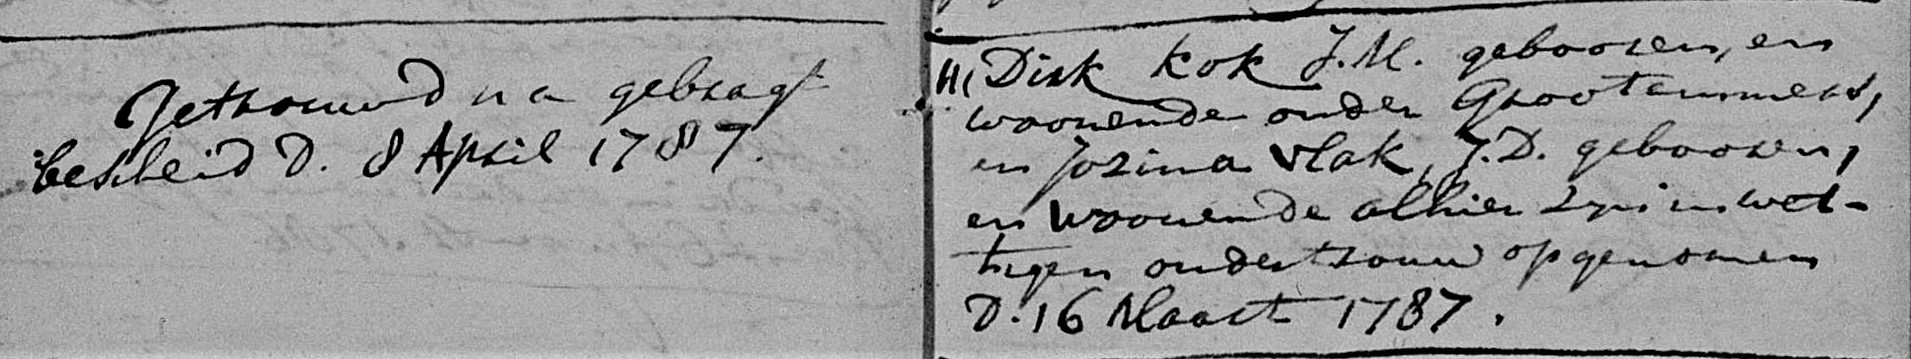 Getrouwd na gebragt
bescheid D. 8 April 1787.
Dirk Kok J.M. gebooren, en
woonende onder Grootammers,
en Jozina Vlak, J.D. gebooren,
en woonende alhier zyn in wet-
tigen ondertrouw opgenomen
D. 16 Maart 1787.